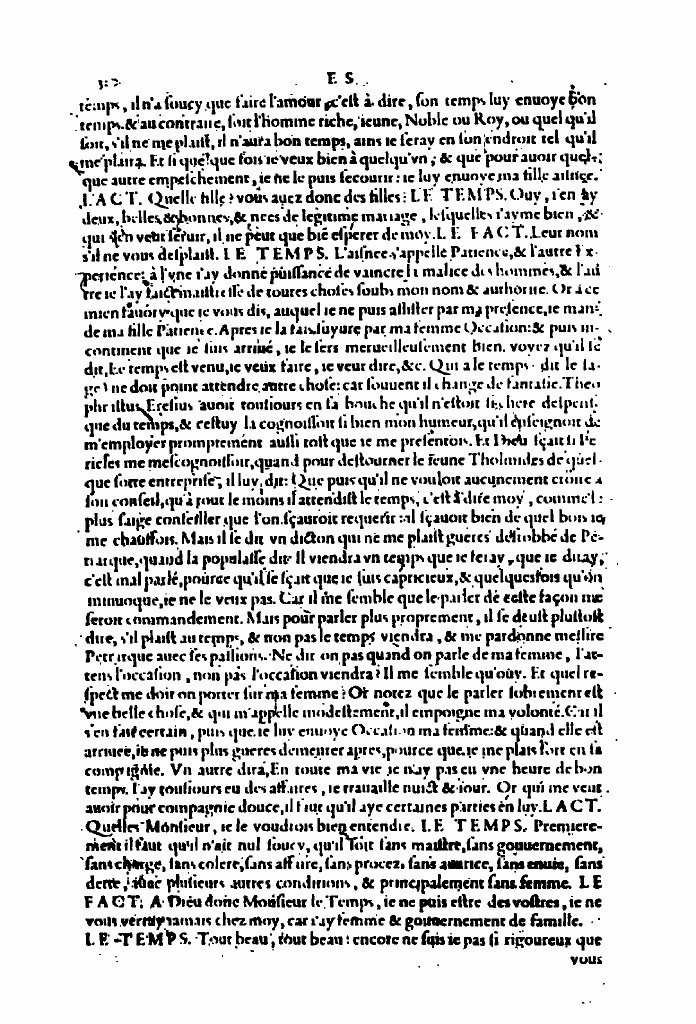 E S.
temps, il n'a soucy que faire l'amour, c'est à dire, son temps luy enuoye bon
temps. & au contraire, soit l'homme riche, ieune, Noble ou Roy, ou quel qu'il
soit, s'il ne me plaist, il n'aura bon temps, ains ie seray en son endroit tel qu'il
me plaira. Et si quelque fois ie veux bien à quelqu'vn, & que pour auoir quel-
que autre empeschement, ie ne le puis secourir: ie luy enuoye ma fille aisnee.
L'ACT. Quelle fille? vous auez donc des filles? LE TEMPS. Ouy, i'en ay
deux, belles, & bonnes, & nees de legitime mariage, lesquelles i'ayme bien, &
qui s'en veut seruir, il ne peut que biē esperer de moy. LE FACT. Leur nom
s'il ne vous desplaist. LE TEMPS. L'aisnee s'appelle Patience, & l'autre Ex-
perience: à l'vne i'ay donné puissance de vaincre la malice des hommes, & l'au
tre ie l'ay faict maistresse de toutes choses soubs mon nom & authorité. Or à ce
mien fauory que ie vous dis, auquel ie ne puis assister par ma presence, ie mande
de ma fille Patience. Apres ie la fais suyure par ma femme Occasion: & puis in-
continent que ie suis arriué, ie le sers merueilleusement bien. voyez qu'il se
dit, Le temps est venu, ie veux faire, ie veux dire, &c. Qui a le temps dit le sa-
ge) ne doit point attendre autre chose: car souuent il change de fantasie. Theo
phrastus Eresius auoit tousiours en sa bouche qu'il n'estoit si chere despense
que du temps, & cestuy la cognoissoit si bien mon humeur, qu'il enseignoit de
m'employer promptement aussi tost que ie me presentois. Et Dieu sçait si Pe
ricles me mescognoissoit, quand pour destourner le ieune Tholmides de quel-
que sotte entreprise, il luy dit: Que puis qu'il ne vouloit aucunement croire a
son conseil, qu'à tout le moins il attendist le temps, c'est à dire moy, comme le
plus saige conseiller que l'on sçauroit requerir: il sçauoit bien de quel bois ie
me chauffois. Mais il se dit vn dicton qui ne me plaist gueres desrobbé de Pe-
trarque, quand la populasse dit: Il viendra vn temps que ie feray, que ie diray,
c'est mal parlé, pource qu'il se sçait que ie suis capricieux, & quelquesfois qu'on
m'inuoque, ie ne le veux pas. Car il me semble que le parler de ceste façon me
seroit commandement. Mais pour parler plus proprement, il se deust plustost
dire, s'il plaist au temps, & non pas le temps viendra, & me pardonne messire
Petrarque auec ses passions. Ne dit on pas quand on parle de ma femme, l'at-
tens l'occasion, non pas l'occasion viendra? Il me semble qu'ouy. Et quel re-
spect me doit on porter sur ma femme? Or notez que le parler sobrement est
vne belle chose, & qui m'appelle modestement, il empoigne ma volonté. Car il
s'en fait certain, puis que ie luy enuoye Occasion ma femme: & quand elle est
arriuee, ie ne puis plus gueres demeurer apres, pource que ie me plais fort en sa
compagnie. Vn autre dira, En toute ma vie ie n'ay pas eu vne heure de bon
temps. I'ay tousiours eu des affaires, ie trauaille nuict & iour. Or qui me veut
auoir pour compagnie douce, il faut qu'il aye certaines parties en luy. L'ACT.
Quelles Monsieur, ie le voudrois bien entendre. LE TEMPS. Premiere-
ment il faut qu'il n'ait nul soucy, qu'il soit sans maistre, sans gouuernement,
sans charge, sans colere, sans affaire, sans procez, sans auarice, sans enuie, sans
dette, auec plusieurs autres conditions, & principalement sans femme. LE
FACT. A Dieu donc Monsieur le Temps, ie ne puis estre des vostres, ie ne
vous verray iamais chez moy, car i'ay femme & gouuernement de famille.
LE TEMPS. Tout beau, tout beau: encore ne suis ie pas si rigoureux que
vous